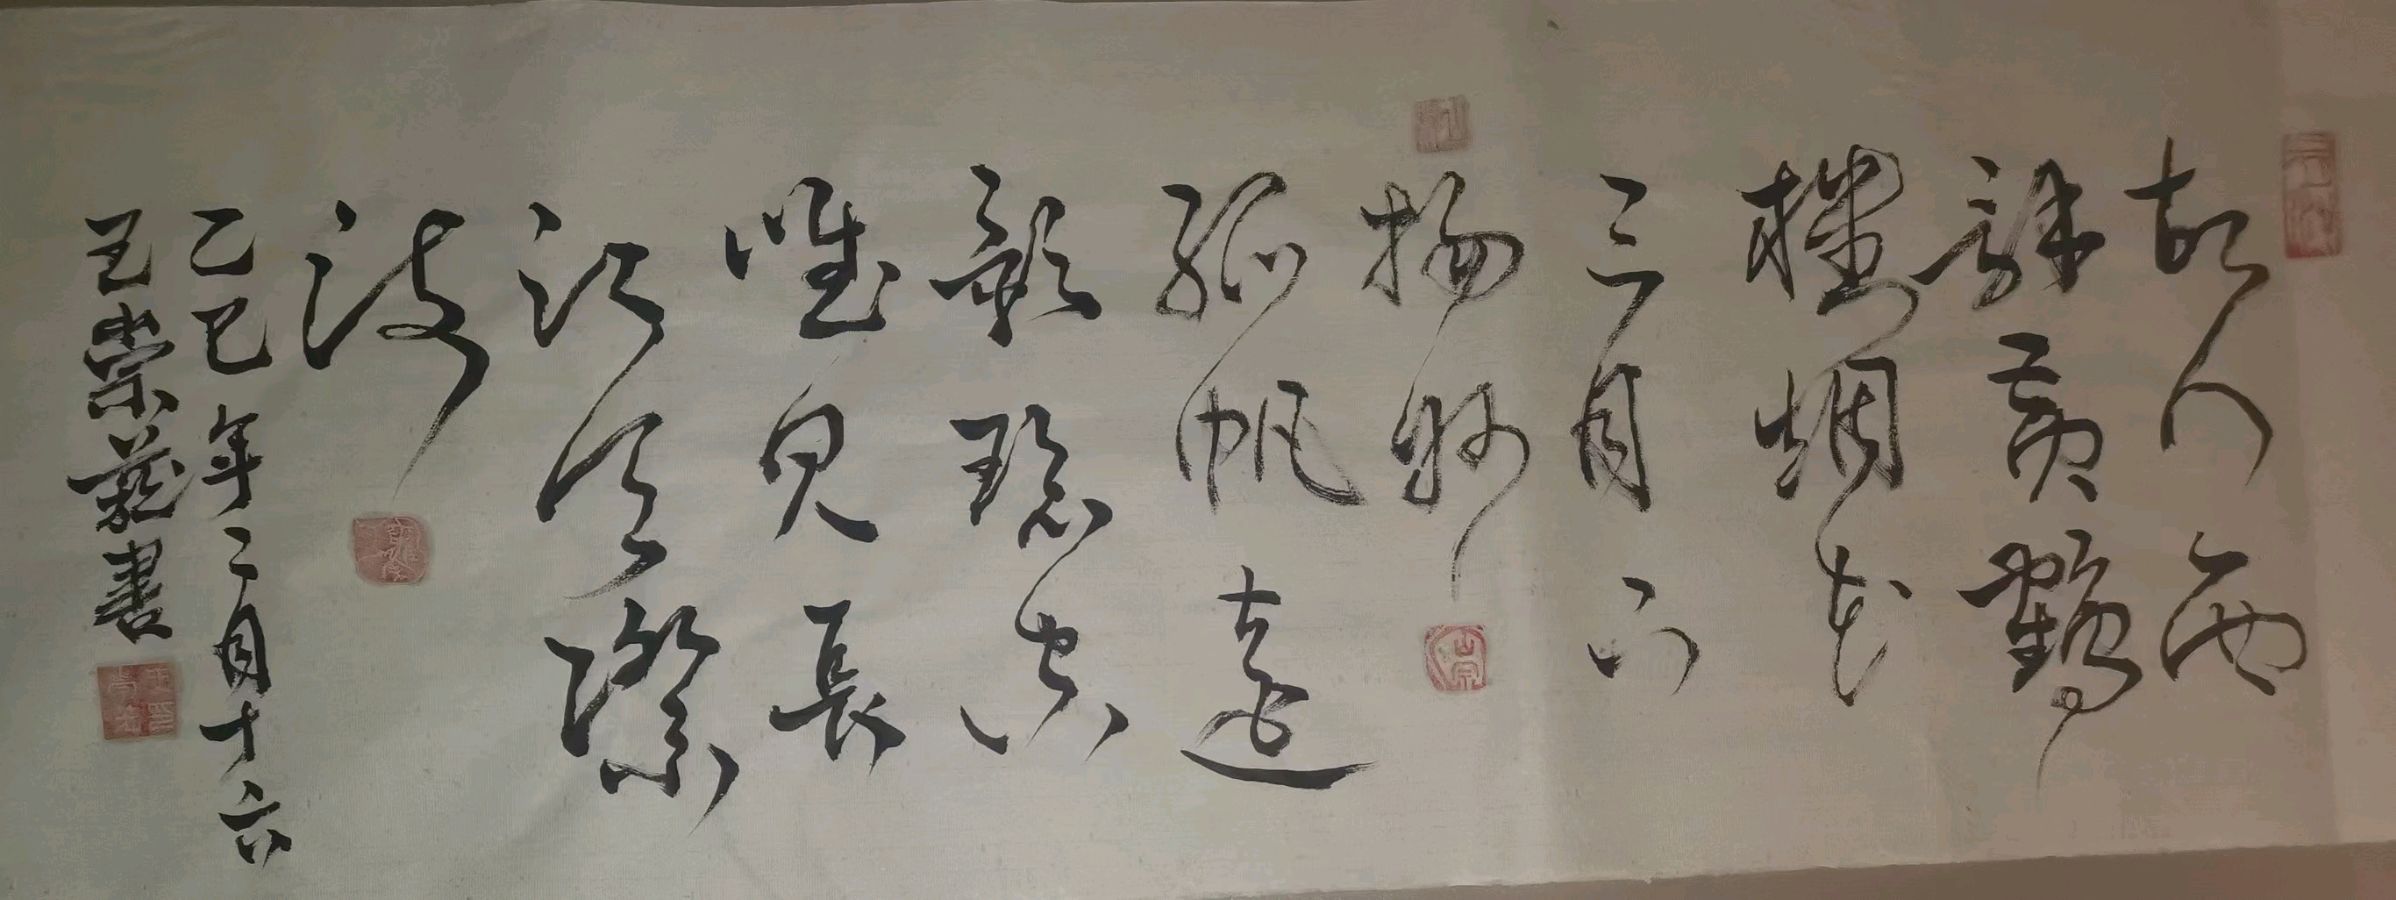 故人西
辭黃鶴
樓烟花
三月下
揚州
孤帆遠
影碧空
唯見長
江天際
流
乙巳年二月十六
王崇書